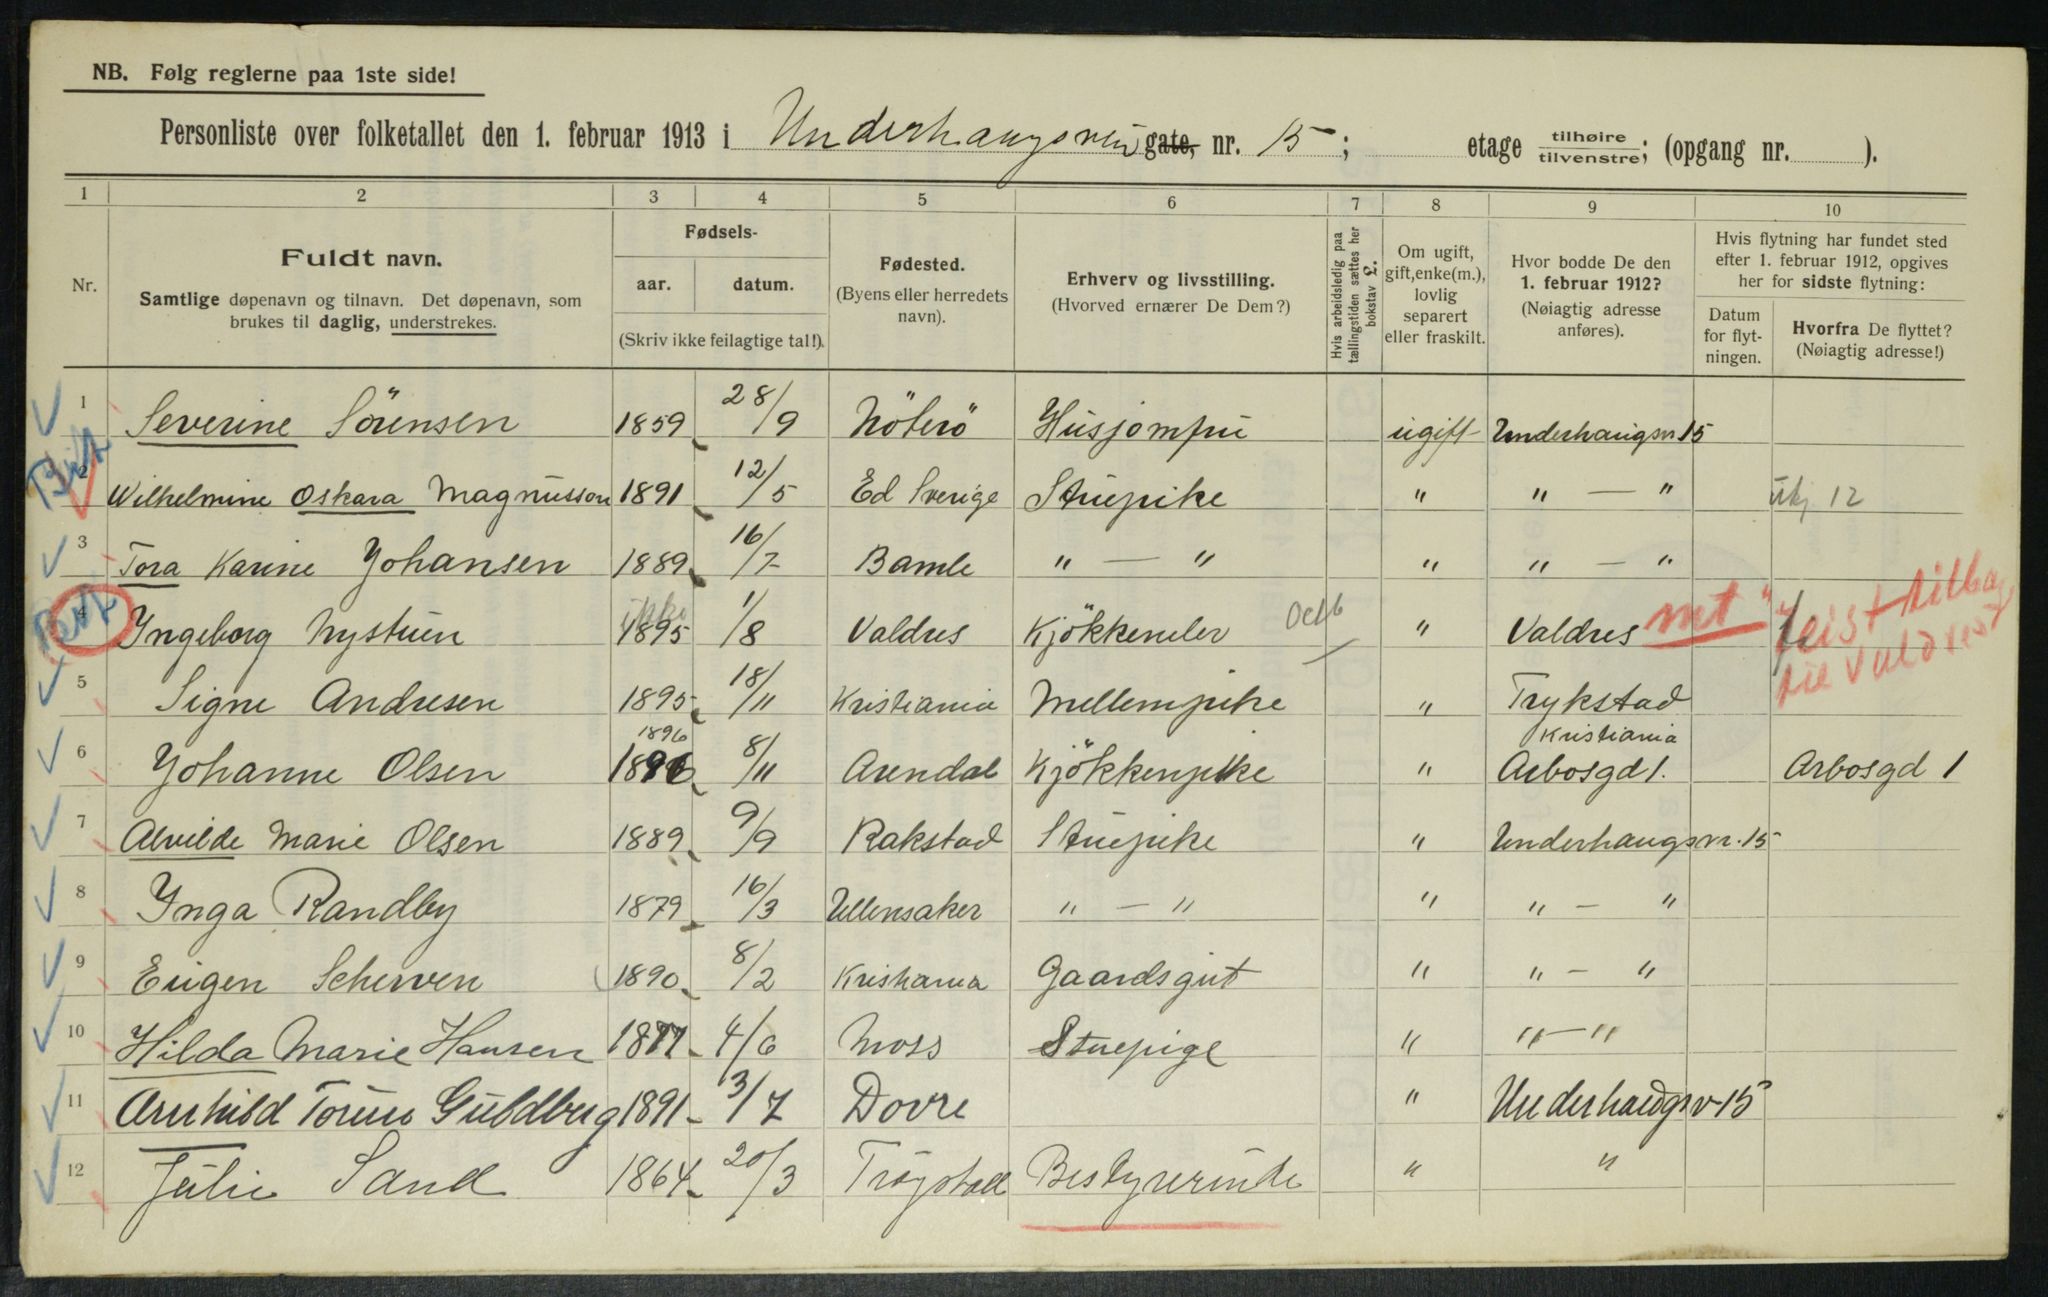 NB. Følg reglerne paa 1ste side!
Personliste over folketallet den 1. februar 1913 i Underhaugsvei gate, nr. 15; etage tilhøire tilvenstre; (opgang nr. ).
1 2 3 4 5 6 7 8 9 10
Nr.
Fuldt navn.
Samtlige døpenavn og tilnavn. Det døpenavn, som
brukes til daglig, understrekes.
Fødsels-
aar. datum.
(Skriv ikke feilagtige tal!).
Fødested.
(Byens eller herredets
navn).
Erhverv og livsstilling.
(Hvorved ernærer De Dem?)
Hvis arbeidsledig paa
tællingstiden sættes her
bokstav L.
Om ugift,
gift, enke(m.),
lovlig
separert
eller fraskilt.
Hvor bodde De den
1. februar 1912?
(Nøiagtig adresse
anføres).
Hvis flytning har fundet sted
efter 1. februar 1912, opgives
her for sidste flytning:
Datum
for flyt-
ningen.
Hvorfra De flyttet?
(Nøiagtig adresse!)
1 Severine Sörensen 1859 28/9 Nöterö Husjomfru ugift Underhaugsv 15
2 Wilhelmine Oskara Magnusson 1891 12/5 Ed Sverige Stuepike " " — " 12
3 Tora Karine Johansen 1889 16/7 Bamle " — " " " — "
4 Ingeborg Nystuen ikke 1895 1/8 Valdres Kjökkenelev Octb " Valdres reist tilbage
til Valdrest
5 Signe Andresen 1895 18/11 Kristiania Mellempike " Trykstad
6 Johanne Olsen 1896 1896 8/11 Arendal Kjökkenpike " Kristiania
Arbosgd 1. Arbosgd 1
7 Alvilde Marie Olsen 1889 9/9 Rakstad Stuepike " Underhaugsv. 15
8 Inga Randby 1879 16/3 Ullensaker " — " " " — "
9 Eugen Scherven 1890 8/2 Kristiania Gaardsgut " " — "
10 Hilda Marie Hansen 1877 4/6 Moss Stuepige " " — "
11 Arnhild Torun Guldberg 1891 3/7 Dovre " Underhaugsv 15
12 Julie Sand 1864 20/3 Trøgstad Bestyrerinde " "